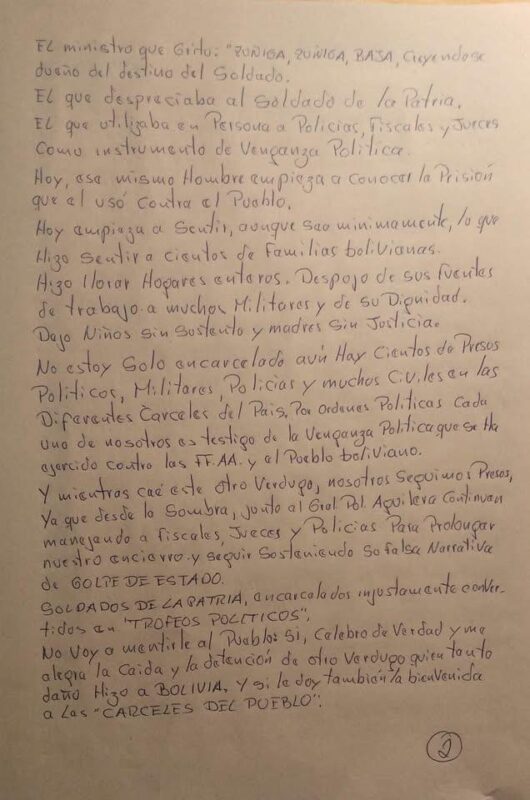 El ministro que Grito: "ZUÑIGA, ZUÑIGA, BAJA, Creyendose
dueño del destino del Soldado.
El que despreciaba al Soldado de la Patria.
El que utilizaba en Persona a Policias, Fiscales y Jueces
Como instrumento de Venganza Politica.
Hoy, ese mismo Hombre empieza a conocer la Prisión
que el usó contra el Pueblo.
Hoy empieza a Sentir, aunque sea minimamente, lo que
Hizo Sentir a cientos de Familias bolivianas.
Hizo llorar Hogares enteros. Despojo de sus fuentes
de trabajo a muchos Militares y de su Dignidad.
Dejo Niños Sin Sustento y madres Sin Justicia.
No estoy Solo encarcelado aún Hay Cientos de Presos
Politicos, Militares, Policias y muchos Civiles en las
Diferentes Carceles del Pais, Por ordenes Politicas Cada
uno de nosotros es testigo de la Venganza Politica que se Ha
ejercido contra las FF.AA. y el Pueblo boliviano.
Y mientras caé este otro Verdugo, nosotros Seguimos Presos,
Ya que desde la Sombra, junto al Gral. Pol. Aguilera Continuan
manejando a fiscales, Jueces y Policias Para Prolongar
nuestro encierro y seguir Sosteniendo So falsa Narrativa
de GOLPE DE ESTADO.
SOLDADOS DE LA PATRIA, encarcelados injustamente conver-
tidos en "TROFEOS POLITICOS".
No Voy a mentirle al Pueblo: Si, Celebro de Verdad y me
alegra la Caida y la detención de otro Verdugo quien tanto
daño Hizo a BOLIVIA, Y si le doy también la bienvenida
a las "CARCELES DEL PUEBLO".
2